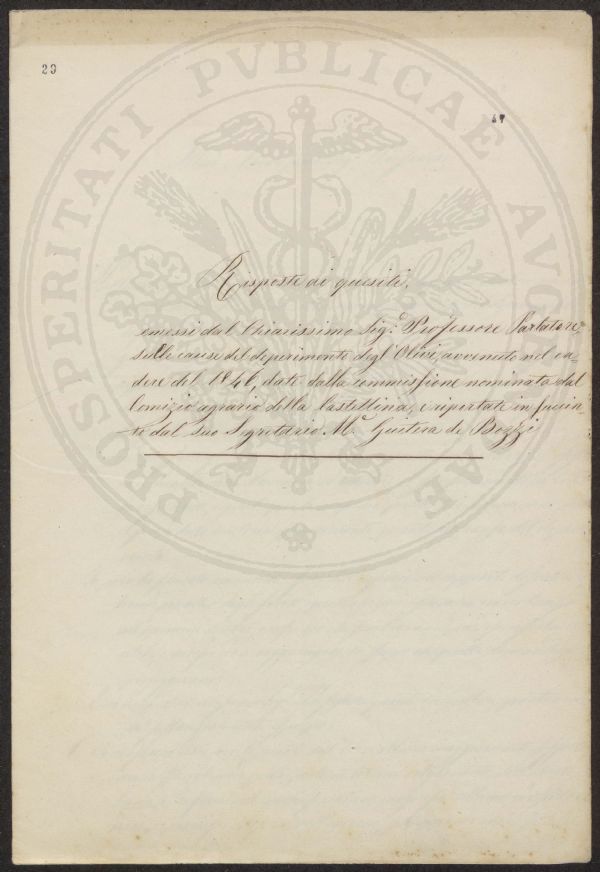 29
47
PROSPERITATI PVBLICAE AVGENDAE
Risposte di quesiti,
emessi dal Chiarissimo Sig.r Professore
sulle cause del deperimento degl'Olivi, avvenuto nel ca-
dere del 1846, date dalla commissione nominata dal
Comizio agrario della Castellina, e riportate in
to dal suo Segretario M.e de Bozzi